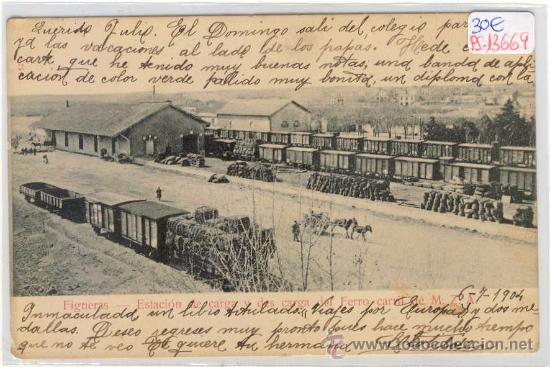 Querido Julio, El Domingo sali del colegio para
ya las vacaciones al lado de los papas. Hede
carte, que he tenido muy buenas notas, una banda de apli
cación de color verde palido muy bonita, un diploma con la
30€
B-13669
Figueras — Estación de carga y des carga del Ferro carril de M. Z. A.
6-7-1904
Inmaculada un libro titulado: viajes por Europa y dos me
dallas. Deseo regreses muy pronto pues hace mucho tiempo
que no te veo. Te quiere tu hermano
todocoleccion.net